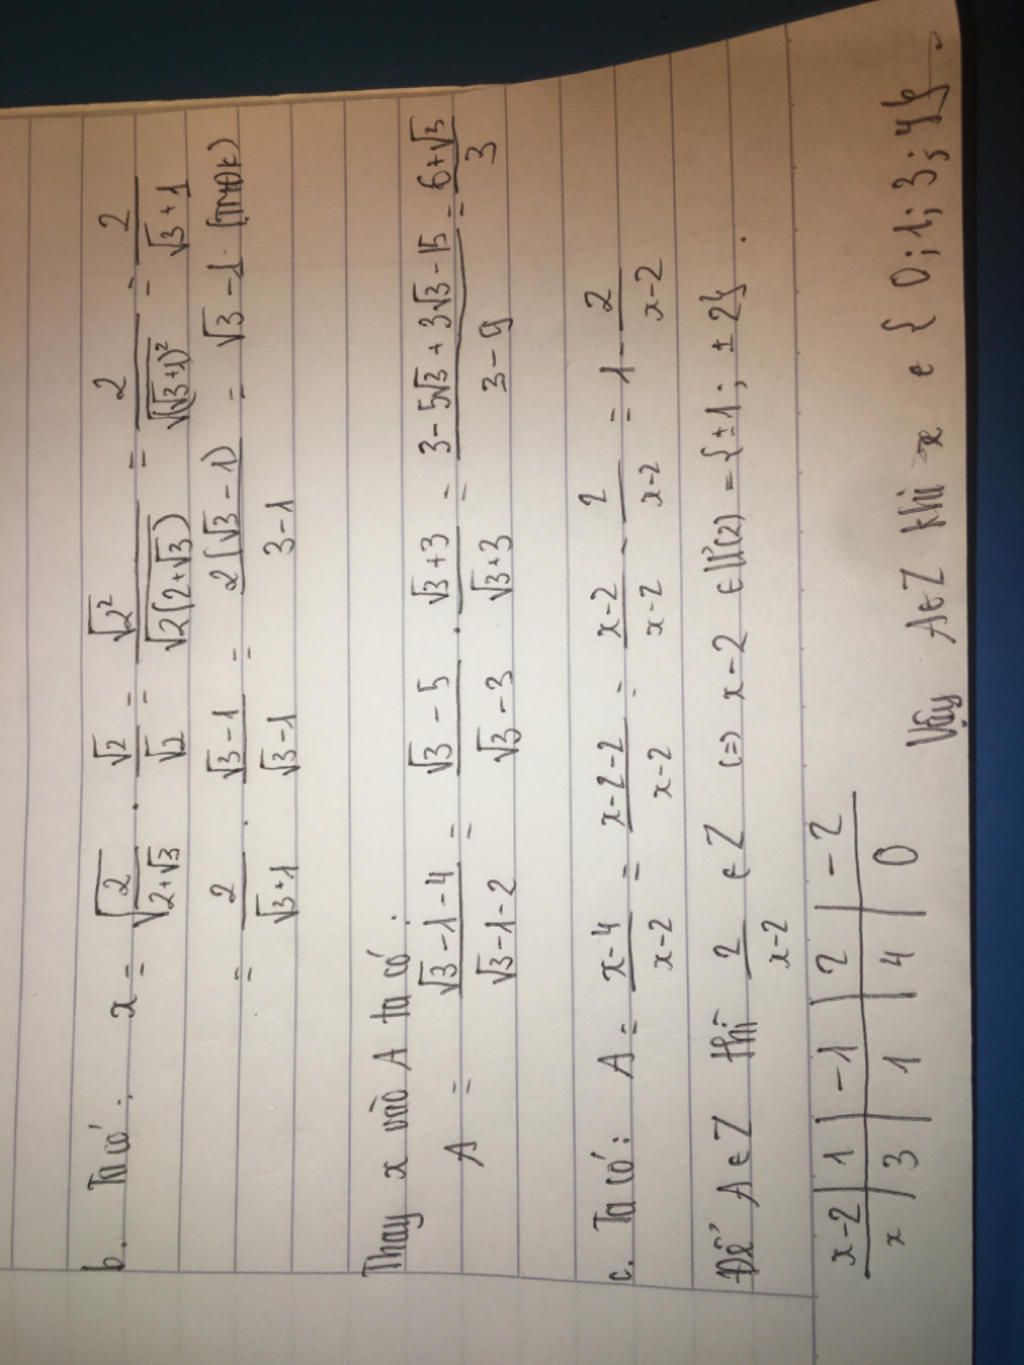 b. Ta có: x = √2/√(2+√3) · √2/√2 = √2²/√(2(2+√3)) = 2/√((√3+1)²) = 2/(√3+1)
= 2/(√3+1) · (√3-1)/(√3-1) = 2(√3-1)/(3-1) = √3-1 (TMĐK)
Thay x vào A ta có:
A = (√3-1-4)/(√3-1-2) = (√3-5)/(√3-3) · (√3+3)/(√3+3) = (3-5√3+3√3-15)/(3-9) = (6+√3)/3
c. Ta có: A = (x-4)/(x-2) = (x-2-2)/(x-2) = (x-2)/(x-2) - 2/(x-2) = 1 - 2/(x-2)
Để A∈Z thì 2/(x-2) ∈Z (=) x-2 ∈Ư(2) = {±1; ±2}.
x-2 | 1 | -1 | 2 | -2
x | 3 | 1 | 4 | 0
Vậy A∈Z khi x ∈ {0;1;3;4}.